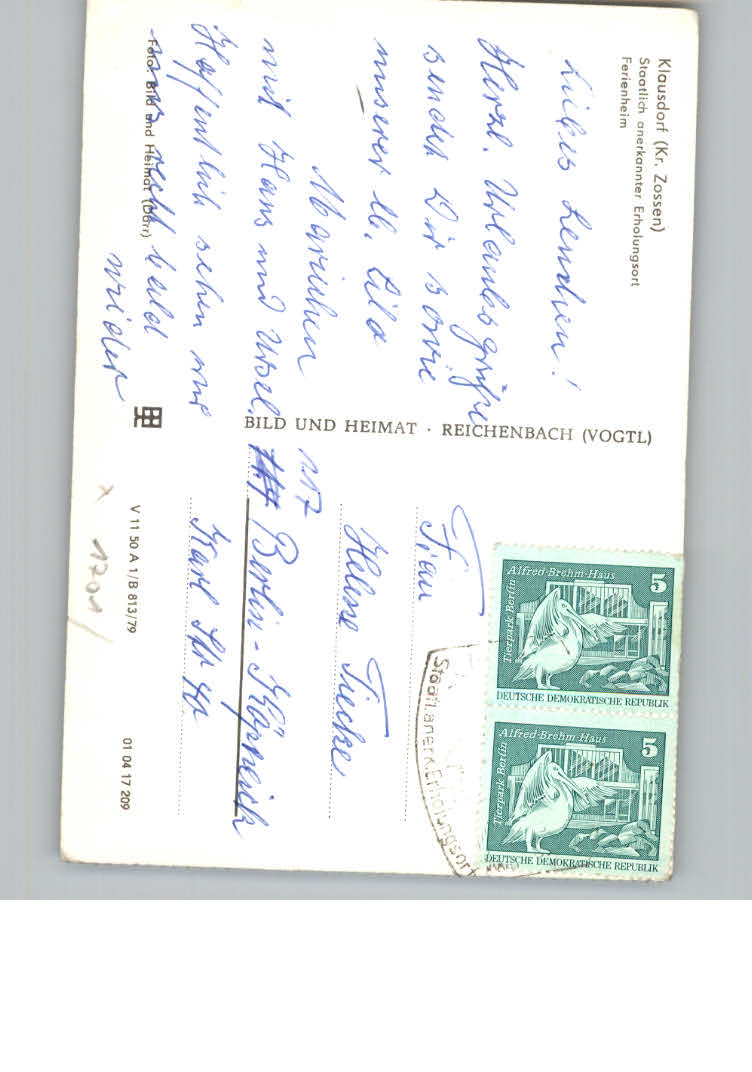 Klausdorf (Kr. Zossen)
Staatlich anerkannter Erholungsort
Ferienheim
Liebes Lenchen!
Herzl. Urlaubsgrüße
sendet Dir sowie
unserer lb. Lilo
Mariechen
mit Hans und Ursel.
Hoffentlich sehen wir
uns recht bald
wieder
Foto: Bild und Heimat (Darr)
BILD UND HEIMAT · REICHENBACH (VOGTL)
Frau
Helene
117
Berlin-Köpenick
Karl Str
V 11 50 A 1/B 813/79
01 04 17 209
1701
5
Alfred-Brehm-Haus
Tierpark Berlin
DEUTSCHE DEMOKRATISCHE REPUBLIK
5
Alfred-Brehm-Haus
Tierpark Berlin
DEUTSCHE DEMOKRATISCHE REPUBLIK
Staatl. anerk. Erholungsort